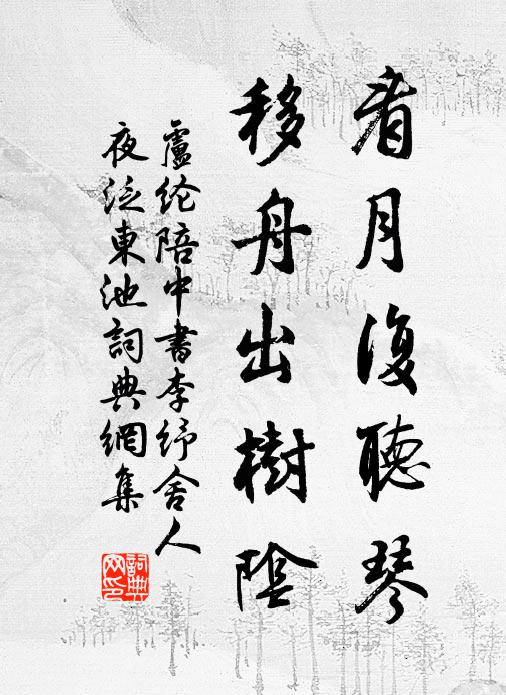 看月復聽琴
移舟出樹陰
盧纶陪中書李纾舍人
夜泛東池詞典網集
詞典
网印